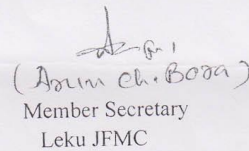 (Arun Ch. Bora)
Member Secretary
Leku JFMC